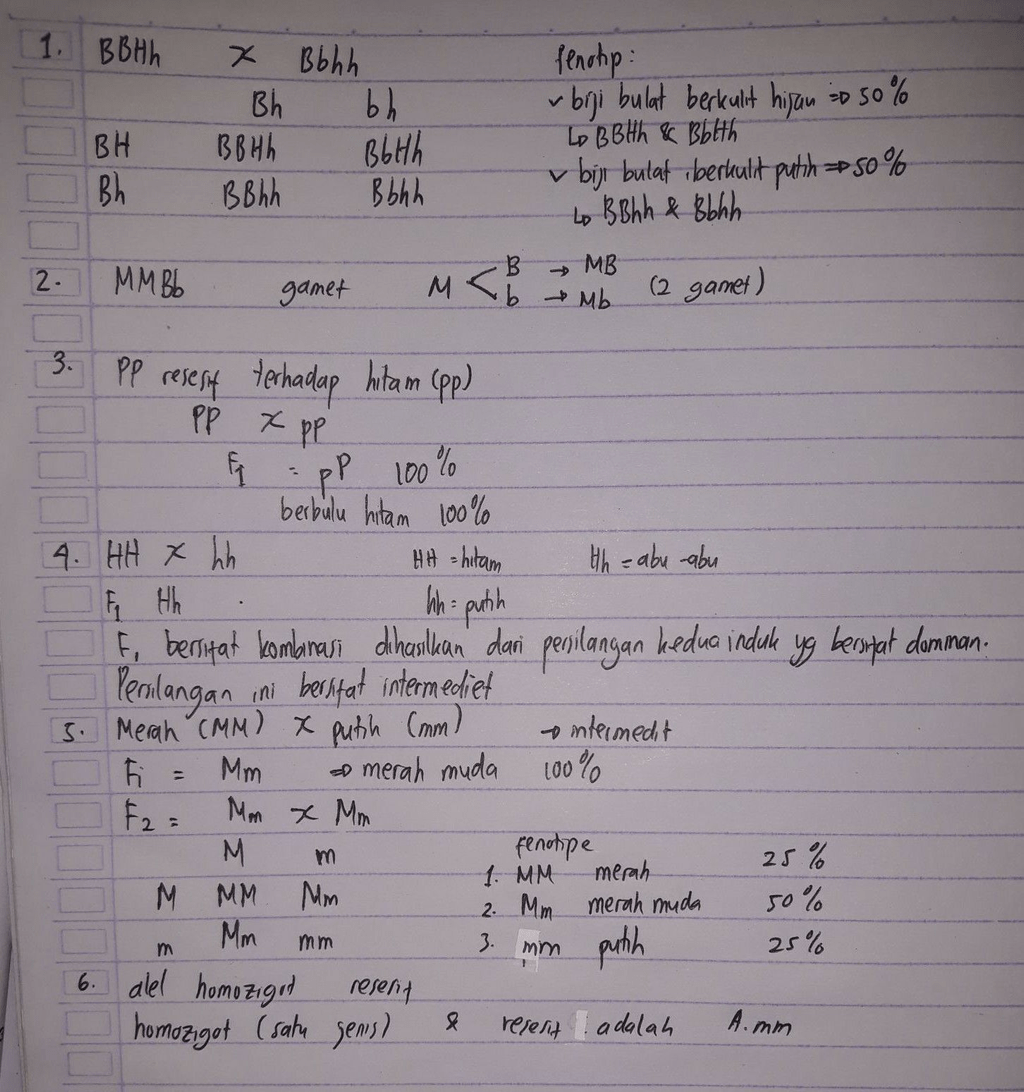 1. BBHh x Bbhh fenotip:
Bh bh ✓ biji bulat berkulit hijau => 50%
↳ BBHh & BbHh
BH BBHh BbHh
✓ biji bulat berkulit putih => 50%
Bh BBhh Bbhh
↳ BBhh & Bbhh
2. MMBb gamet M < B → MB
b → Mb (2 gamet)
3. PP resesif terhadap hitam (pp)
PP x pp
F1 = pP 100%
berbulu hitam 100%
4. HH x hh HH = hitam Hh = abu-abu
F1 Hh hh = putih
F1 bersifat kombinasi dihasilkan dari persilangan kedua induk yg bersifat dominan.
Persilangan ini bersifat intermediet
5. Merah (MM) x putih (mm) → intermedit
F1 = Mm => merah muda 100%
F2 = Mm x Mm
M m fenotipe
1. MM merah 25%
M MM Mm 2. Mm merah muda 50%
m Mm mm 3. mm putih 25%
6. alel homozigot resesif
homozigot (satu jenis) & resesif adalah A. mm